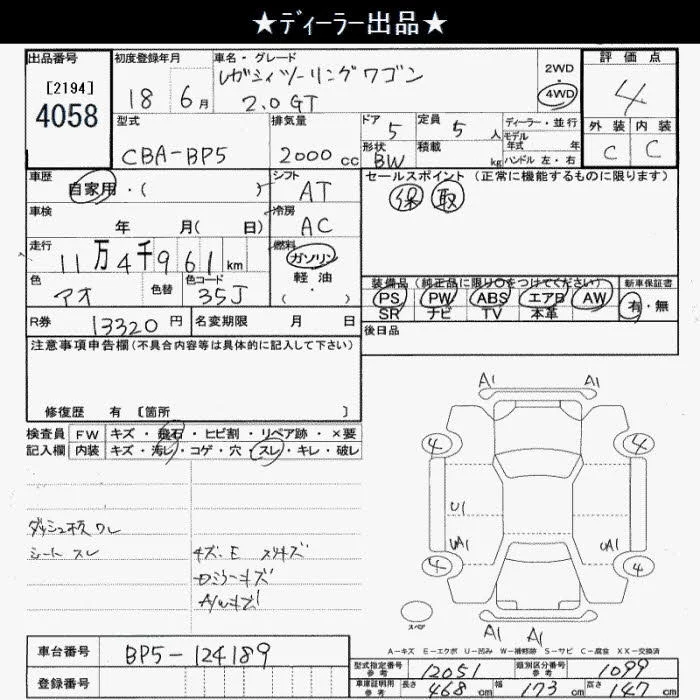 ★ディーラー出品★
出品番号 初度登録年月 車名・グレード 評価点
[2194] 4058
18 6月 レガシィツーリングワゴン 2.0GT
2WD 4WD
4
型式 排気量 ドア 定員 ディーラー・並行
CBA-BP5 2000cc 5 5人
モデル年式 年
外装 内装
C C
形状 積載 ハンドル 左・右
BW kg
車歴 シフト セールスポイント(正常に機能するものに限ります)
自家用・( ) AT 保 取
車検 冷房
年 月( 日) AC
走行 燃料
11万4千961km ガソリン
軽油
( ・ )
色 色替 色コード
アオ 35J
装備品(純正品に限り○をつけてください) 新車保証書
PS PW ABS エアB AW 有・無
SR ナビ TV 本革
R券 13320円 名変期限 月 日
後日品
注意事項申告欄(不具合内容等は具体的に記入して下さい)
修復歴 有 [箇所 ]
検査員 FW キズ・飛石・ヒビ割・リペア跡・×要
記入欄 内装 キズ・汚レ・コゲ・穴・スレ・キレ・破レ
シート スレ
キズ、E
ドミラーキズ
A/Wキズ
A1 A1
4 4
U1
UA1 UA1
4 4
A1 A1
スペア
A-キズ E-エクボ U-凹み W-補修跡 S-サビ C-腐食 XX-交換済
車台番号 BP5-124189
登録番号
型式指定番号 参考 12051 類別区分番号 参考 1099
車庫証明用 参考 長さ 468cm 幅 173cm 高さ 147cm